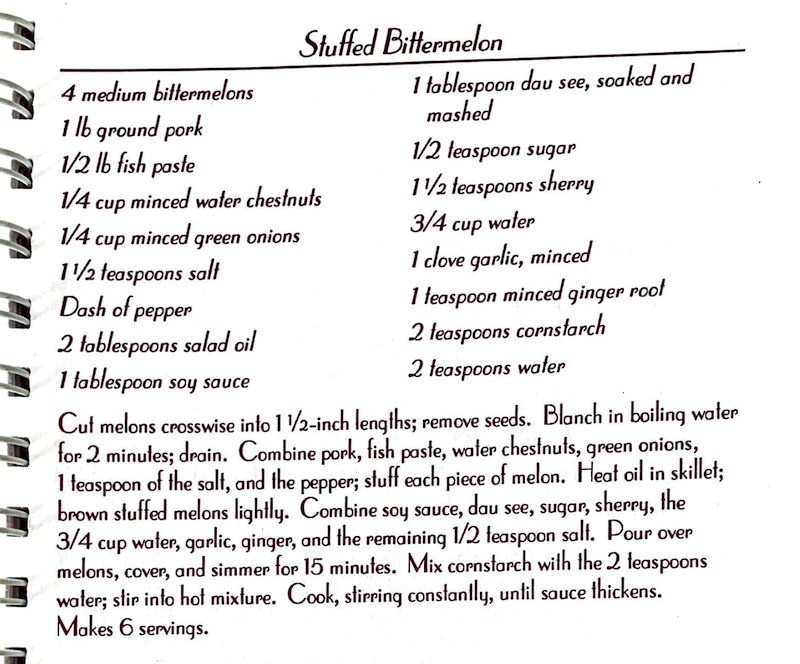 Stuffed Bittermelon
4 medium bittermelons
1 lb ground pork
1/2 lb fish paste
1/4 cup minced water chestnuts
1/4 cup minced green onions
1 1/2 teaspoons salt
Dash of pepper
2 tablespoons salad oil
1 tablespoon soy sauce
1 tablespoon dau see, soaked and
mashed
1/2 teaspoon sugar
1 1/2 teaspoons sherry
3/4 cup water
1 clove garlic, minced
1 teaspoon minced ginger root
2 teaspoons cornstarch
2 teaspoons water
Cut melons crosswise into 1 1/2-inch lengths; remove seeds. Blanch in boiling water
for 2 minutes; drain. Combine pork, fish paste, water chestnuts, green onions,
1 teaspoon of the salt, and the pepper; stuff each piece of melon. Heat oil in skillet;
brown stuffed melons lightly. Combine soy sauce, dau see, sugar, sherry, the
3/4 cup water, garlic, ginger, and the remaining 1/2 teaspoon salt. Pour over
melons, cover, and simmer for 15 minutes. Mix cornstarch with the 2 teaspoons
water; stir into hot mixture. Cook, stirring constantly, until sauce thickens.
Makes 6 servings.